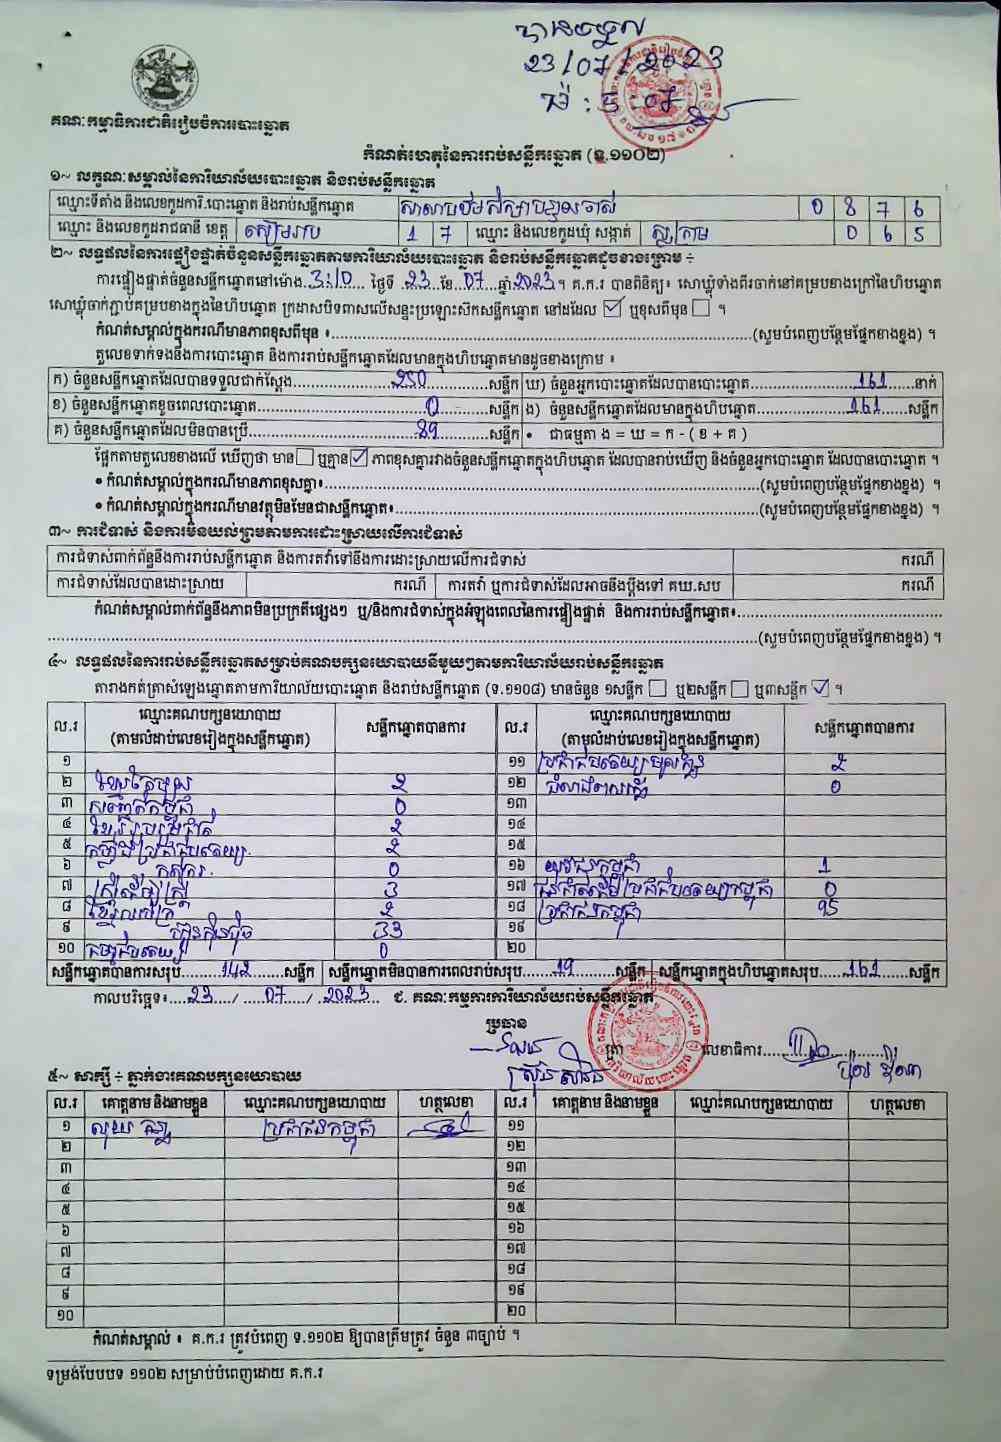 បានចម្លង
23/07/2023
ម៉ោង
គណៈកម្មាធិការជាតិរៀបចំការបោះឆ្នោត
កំណត់ហេតុនៃការរាប់សន្លឹកឆ្នោត (ទ.១១០២)
១~ លក្ខណៈសម្គាល់នៃការិយាល័យបោះឆ្នោត និងរាប់សន្លឹកឆ្នោត
ឈ្មោះទីតាំង និងលេខកូដការិ.បោះឆ្នោត និងរាប់សន្លឹកឆ្នោត សាលាបឋមសិក្សា ចាស់ 0 8 7 6
ឈ្មោះ និងលេខកូដរាជធានី ខេត្ត សៀមរាប 1 7 ឈ្មោះ និងលេខកូដឃុំ សង្កាត់ ស្លក្រាម 0 6 5
២~ លទ្ធផលនៃការផ្ទៀងផ្ទាត់ចំនួនសន្លឹកឆ្នោតតាមការិយាល័យបោះឆ្នោត និងរាប់សន្លឹកឆ្នោតដូចខាងក្រោម ÷
ការផ្ទៀងផ្ទាត់ចំនួនសន្លឹកឆ្នោតនៅម៉ោង 3:10 ថ្ងៃទី 23 ខែ 07 ឆ្នាំ 2023 ។ គ.ក.រ បានពិនិត្យ៖ សោឃ្លុំទាំងពីរចាក់នៅគម្របខាងក្រៅនៃហិបឆ្នោត
សោឃ្លុំចាក់ភ្ជាប់គម្របខាងក្នុងនៃហិបឆ្នោត ក្រដាសបិទពាសលើសន្ទះប្រឡោះស៊កសន្លឹកឆ្នោត នៅដដែល ☑ ឬខុសពីមុន ☐ ។
កំណត់សម្គាល់ក្នុងករណីមានភាពខុសពីមុន ៖ (សូមបំពេញបន្ថែមផ្នែកខាងខ្នង) ។
តួលេខទាក់ទងនឹងការបោះឆ្នោត និងការរាប់សន្លឹកឆ្នោតដែលមានក្នុងហិបឆ្នោតមានដូចខាងក្រោម ៖
ក) ចំនួនសន្លឹកឆ្នោតដែលបានទទួលជាក់ស្ដែង 250 សន្លឹក ឃ) ចំនួនអ្នកបោះឆ្នោតដែលបានបោះឆ្នោត 161 នាក់
ខ) ចំនួនសន្លឹកឆ្នោតខូចពេលបោះឆ្នោត 0 សន្លឹក ង) ចំនួនសន្លឹកឆ្នោតដែលមានក្នុងហិបឆ្នោត 161 សន្លឹក
គ) ចំនួនសន្លឹកឆ្នោតដែលមិនបានប្រើ 89 សន្លឹក • ជាធម្មតា ង = ឃ = ក - ( ខ + គ )
ផ្អែកតាមតួលេខខាងលើ ឃើញថា មាន ☐ ឬគ្មាន ☑ ភាពខុសគ្នារវាងចំនួនសន្លឹកឆ្នោតក្នុងហិបឆ្នោត ដែលបានរាប់ឃើញ និងចំនួនអ្នកបោះឆ្នោត ដែលបានបោះឆ្នោត ។
• កំណត់សម្គាល់ក្នុងករណីមានភាពខុសគ្នា៖ (សូមបំពេញបន្ថែមផ្នែកខាងខ្នង) ។
• កំណត់សម្គាល់ក្នុងករណីមានវត្ថុមិនមែនជាសន្លឹកឆ្នោត៖ (សូមបំពេញបន្ថែមផ្នែកខាងខ្នង) ។
៣~ ការជំទាស់ និងការមិនយល់ព្រមតាមការដោះស្រាយលើការជំទាស់
ការជំទាស់ពាក់ព័ន្ធនឹងការរាប់សន្លឹកឆ្នោត និងការតវ៉ាទៅនឹងការដោះស្រាយលើការជំទាស់ ករណី
ការជំទាស់ដែលបានដោះស្រាយ ករណី ការតវ៉ា ឬការជំទាស់ដែលអាចនឹងប្ដឹងទៅ គឃ.សប ករណី
កំណត់សម្គាល់ពាក់ព័ន្ធនឹងភាពមិនប្រក្រតីផ្សេងៗ ឬ/និងការជំទាស់ក្នុងអំឡុងពេលនៃការផ្ទៀងផ្ទាត់ និងការរាប់សន្លឹកឆ្នោត៖
(សូមបំពេញបន្ថែមផ្នែកខាងខ្នង) ។
៤~ លទ្ធផលនៃការរាប់សន្លឹកឆ្នោតសម្រាប់គណបក្សនយោបាយនីមួយៗតាមការិយាល័យរាប់សន្លឹកឆ្នោត
តារាងកត់ត្រាសំឡេងឆ្នោតតាមការិយាល័យបោះឆ្នោត និងរាប់សន្លឹកឆ្នោត (ទ.១១០៨) មានចំនួន ១សន្លឹក ☐ ឬ២សន្លឹក ☐ ឬ៣សន្លឹក ☑ ។
ល.រ ឈ្មោះគណបក្សនយោបាយ (តាមលំដាប់លេខរៀងក្នុងសន្លឹកឆ្នោត) សន្លឹកឆ្នោតបានការ ល.រ ឈ្មោះគណបក្សនយោបាយ (តាមលំដាប់លេខរៀងក្នុងសន្លឹកឆ្នោត) សន្លឹកឆ្នោតបានការ
១ ១១ ប្រជាធិបតេយ្យមូលដ្ឋាន 2
២ ខ្មែរតែមួយ 2 ១២ 0
៣ សញ្ជាតិកម្ពុជា 0 ១៣
៤ ខ្មែររួបរួមជាតិ 2 ១៤
៥ កម្លាំងប្រជាធិបតេយ្យ 2 ១៥
៦ កសិករ 0 ១៦ យុវជនកម្ពុជា 1
៧ ស្ត្រីដើម្បីស្ត្រី 3 ១៧ ជនជាតិដើមប្រជាធិបតេយ្យកម្ពុជា 0
៨ ខ្មែរ 2 ១៨ ប្រជាជនកម្ពុជា 95
៩ ហ៊្វុនស៊ិនប៉ិច 33 ១៩
១០ ធម្មាធិបតេយ្យ 0 ២០
សន្លឹកឆ្នោតបានការសរុប 142 សន្លឹក សន្លឹកឆ្នោតមិនបានការពេលរាប់សរុប 19 សន្លឹក សន្លឹកឆ្នោតក្នុងហិបឆ្នោតសរុប 161 សន្លឹក
កាលបរិច្ឆេទ៖ 23 / 07 / 2023 ជ. គណៈកម្មការការិយាល័យរាប់សន្លឹកឆ្នោត
ប្រធាន
ត្រា លេខាធិការ
៥~ សាក្សី ÷ ភ្នាក់ងារគណបក្សនយោបាយ
ល.រ គោត្តនាម និងនាមខ្លួន ឈ្មោះគណបក្សនយោបាយ ហត្ថលេខា ល.រ គោត្តនាម និងនាមខ្លួន ឈ្មោះគណបក្សនយោបាយ ហត្ថលេខា
១ ប្រជាជនកម្ពុជា ១១
២ ១២
៣ ១៣
៤ ១៤
៥ ១៥
៦ ១៦
៧ ១៧
៨ ១៨
៩ ១៩
១០ ២០
កំណត់សម្គាល់ ៖ គ.ក.រ ត្រូវបំពេញ ទ.១១០២ ឱ្យបានត្រឹមត្រូវ ចំនួន ៣ច្បាប់ ។
ទម្រង់បែបបទ ១១០២ សម្រាប់បំពេញដោយ គ.ក.រ